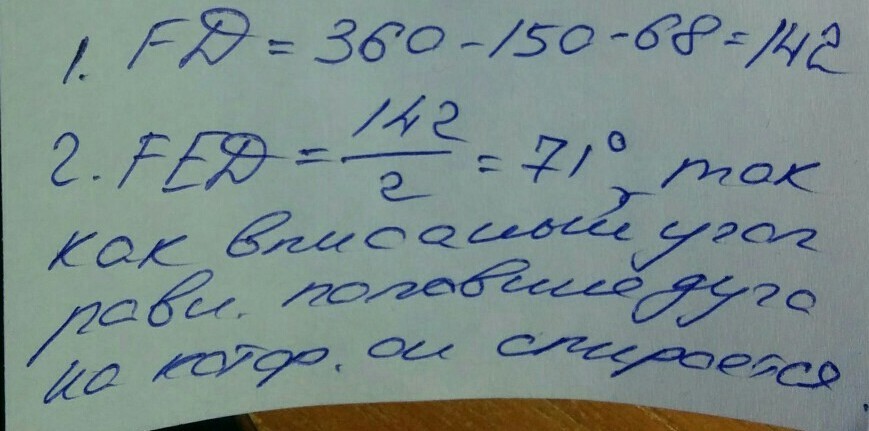 1. FD = 360 - 150 - 68 = 142
2. FED = 142/2 = 71°, так
как вписаный угол
равн. половине дуга
на котор. он спирается